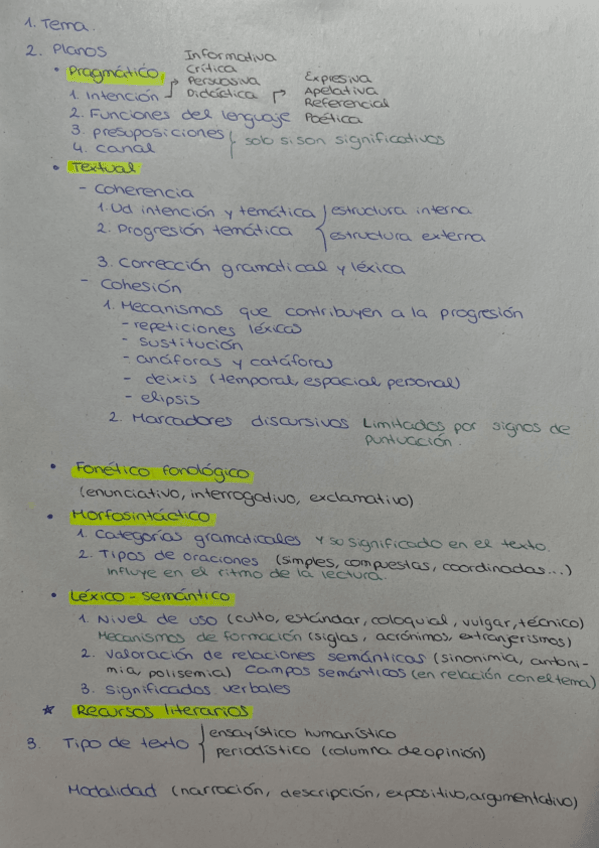 1. Tema.
2. Planos
Informativa
Crítica
Persuasiva
Didáctica
Expresiva
Apelativa
Referencial
Poética
• Pragmático
1. Intención
2. Funciones del lenguaje
3. presuposiciones
4. canal
solo si son significativos
• Textual
- Coherencia
1. Ud intención y temática
2. Progresión temática
estructura interna
estructura externa
3. Corrección gramatical y léxica
- Cohesión
1. Mecanismos que contribuyen a la progresión
- repeticiones léxicas
- sustitución
- anáforas y catáforas
- deixis (temporal, espacial personal)
- elipsis
2. Marcadores discursivos Limitados por signos de
puntuación.
• Fonético fonológico
(enunciativo, interrogativo, exclamativo)
• Morfosintáctico
1. Categorías gramaticales y su significado en el texto.
2. Tipos de oraciones (simples, compuestas, coordinadas...)
influye en el ritmo de la lectura.
• Léxico - semántico
1. Nivel de uso (culto, estándar, coloquial, vulgar, técnico)
Mecanismos de formación (siglas, acrónimos, extranjerismos)
2. Valoración de relaciones semánticas (sinonimia, antoni-
mia, polisemia) Campos semánticos (en relación con el tema)
3. significados verbales
* Recursos literarios
3. Tipo de texto
ensayístico humanístico
periodístico (columna de opinión)
Modalidad (narración, descripción, expositivo, argumentativo)